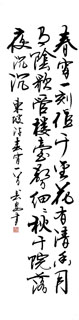 春宵一刻值千金花有清香月
有陰歌管樓臺聲細細秋千院落
夜沉沉 東坡詩春宵